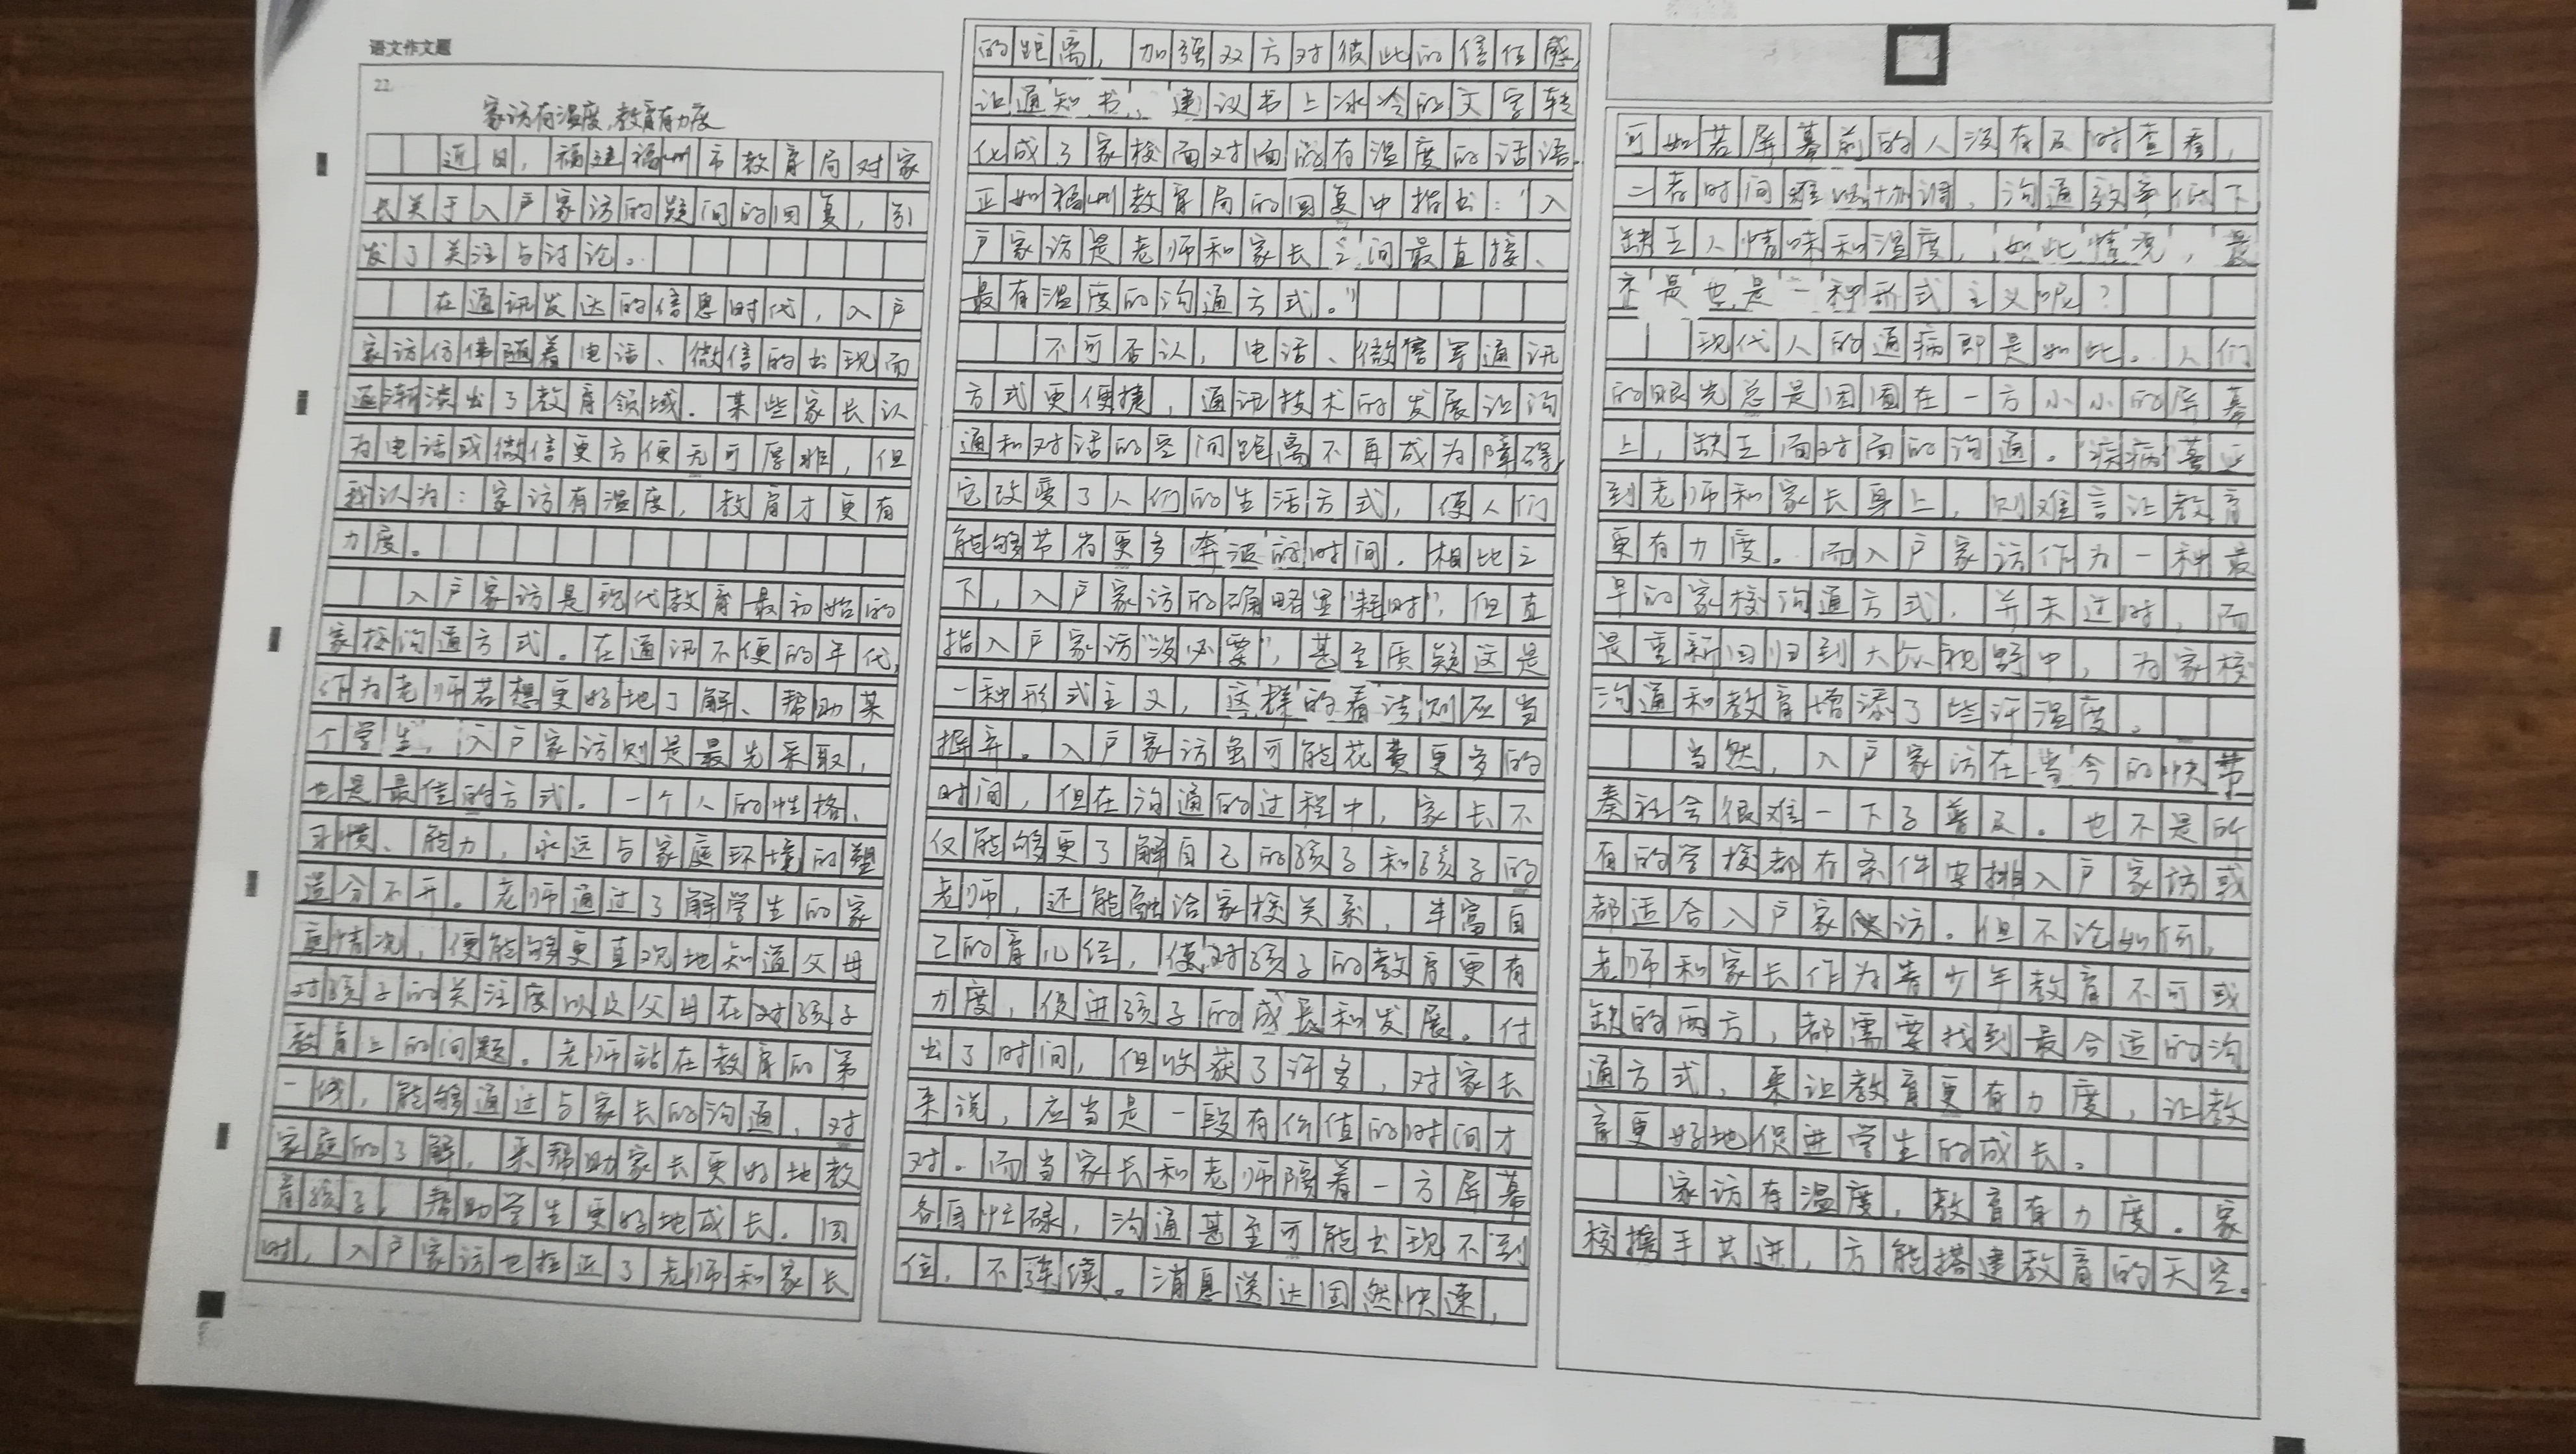 语文作文题
22.
家访有温度,教育有力度
近日,福建福州市教育局对家
长关于入户家访的疑问的回复,引
发了关注与讨论。
在通讯发达的信息时代,入户
家访仿佛随着电话、微信的出现而
逐渐淡出了教育领域。某些家长认
为电话或微信更方便无可厚非,但
我认为:家访有温度,教育才更有
力度。
入户家访是现代教育最初始的
家校沟通方式。在通讯不便的年代,
作为老师若想更好地了解、帮助某
个学生,入户家访则是最先采取,
也是最佳的方式。一个人的性格、
习惯、能力,永远与家庭环境的塑
造分不开。老师通过了解学生的家
庭情况,便能够更直观地知道父母
对孩子的关注度以及父母在对孩子
教育上的问题。老师站在教育的第
一线,能够通过与家长的沟通,对
家庭的了解,来帮助家长更好地教
育孩子,帮助学生更好地成长。同
时,入户家访也拉近了老师和家长
的距离,加强双方对彼此的信任感,
让通知书、建议书上冰冷的文字转
化成了家校面对面的有温度的话语。
正如福州教育局的回复中指出:“入
户家访是老师和家长之间最直接、
最有温度的沟通方式。”
不可否认,电话、微信等通讯
方式更便捷,通讯技术的发展让沟
通和对话的空间距离不再成为障碍,
它改变了人们的生活方式,使人们
能够节省更多奔波的时间。相比之
下,入户家访的确略显“耗时”,但直
指入户家访“没必要”,甚至质疑这是
一种形式主义,这样的看法则应当
摒弃。入户家访虽可能花费更多的
时间,但在沟通的过程中,家长不
仅能够更了解自己的孩子和孩子的
老师,还能融洽家校关系,丰富自
己的育儿经,使对孩子的教育更有
力度,促进孩子的成长和发展。付
出了时间,但收获了许多,对家长
来说,应当是一段有价值的时间才
对。而当家长和老师隔着一方屏幕
各自忙碌,沟通甚至可能出现不到
位,不连续。消息送达固然快速,
可如若屏幕前的人没有及时查看,
二者时间难以协调,沟通效率低下,
缺乏人情味和温度,如此情况,是
不是也是一种形式主义呢?
现代人的通病即是如此。人们
的眼光总是困囿在一方小小的屏幕
上,缺乏面对面的沟通。“疾病”蔓延
到老师和家长身上,则难言让教育
更有力度。而入户家访作为一种最
早的家校沟通方式,并未过时,而
是重新回归到大众视野中,为家校
沟通和教育增添了些许温度。
当然,入户家访在当今的快节
奏社会很难一下子普及。也不是所
有的学校都有条件安排入户家访或
都适合入户家访。但不论如何,
老师和家长作为青少年教育不可或
缺的两方,都需要找到最合适的沟
通方式,来让教育更有力度,让教
育更好地促进学生的成长。
家访有温度,教育有力度。家
校携手共进,方能搭建教育的天空。